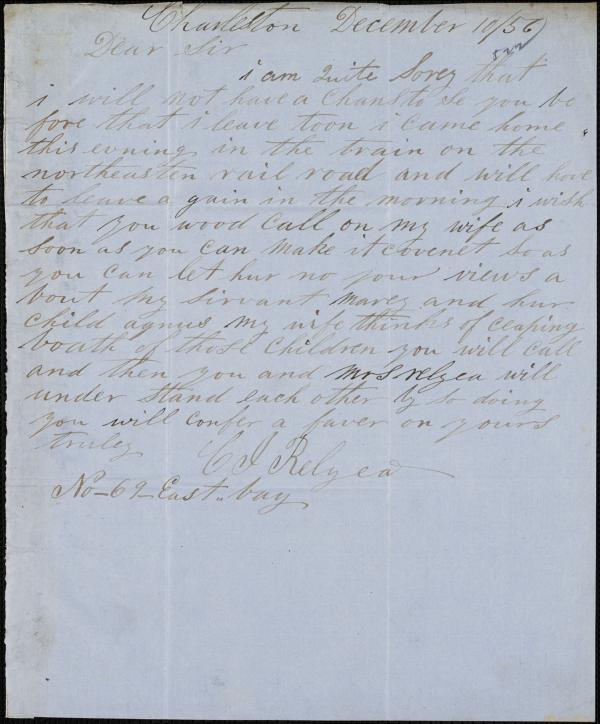 Charleston December 10/56
Dear Sir
i am quite Sorey that
i will not have a chans to Se you be
fore that i leave toon i came home
this evning in the train on the
northeasten rail road and will have
to leave a gain in the morning i wish
that you wood call on my wife as
Soon as you can make it covenet So as
you can let hur no your views a
bout my Sirvant marey and hur
child agnus my wife thinks of ceaping
boath of those children you will call
and then you and mrs relyea will
under Stand each other by So doing
you will confer a faver on yours
truley
C J Relyea
No-69-East.. bay